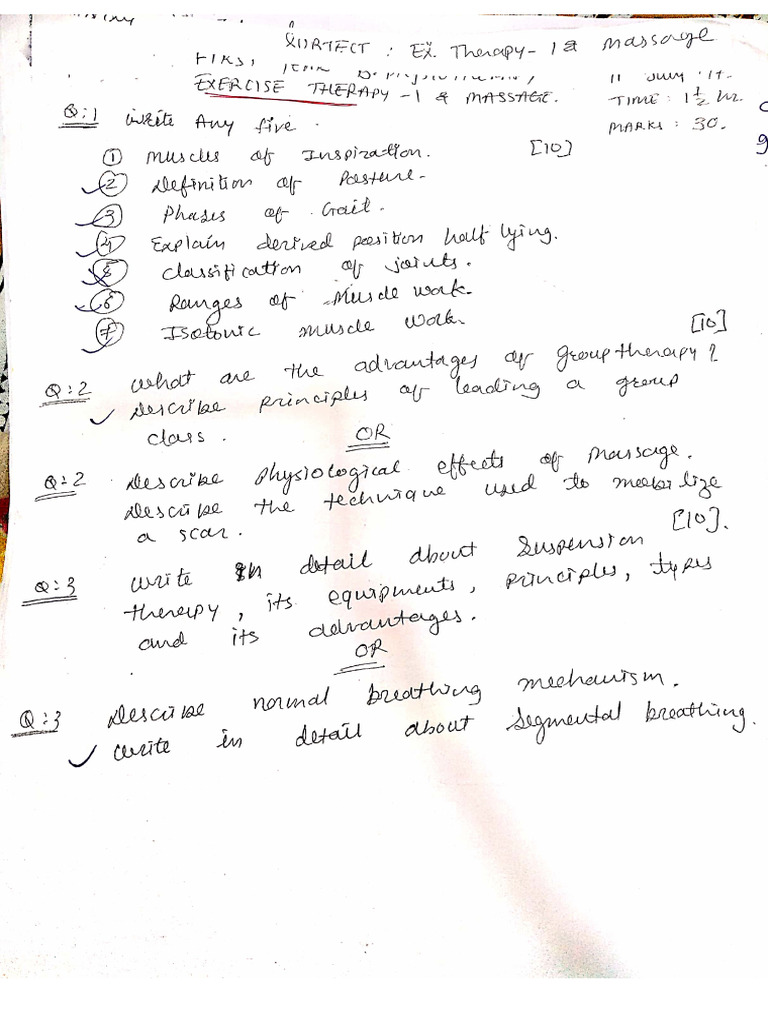 SUBJECT : Ex. Therapy - 1 & Massage
FIRST YEAR
11 July
EXERCISE THERAPY - 1 & MASSAGE.
TIME : 1 1/2 hr.
MARKS : 30.
Q:1 Write Any five.
① Muscles of Inspiration. [10]
② Definition of Posture.
③ Phases of Gait.
④ Explain derived position half lying.
⑤ classification of joints.
⑥ Ranges of Muscle work.
⑦ Isotonic muscle work. [10]
Q:2 What are the advantages of group therapy?
Describe principles of leading a group
class.
OR
Q:2 Describe physiological effects of massage.
Describe the technique used to mobilize
a scar.
[10].
Q:3 Write in detail about suspension
therapy, its equipments, principles, types
and its advantages.
OR
Q:3 Describe normal breathing mechanism.
Write in detail about segmental breathing.